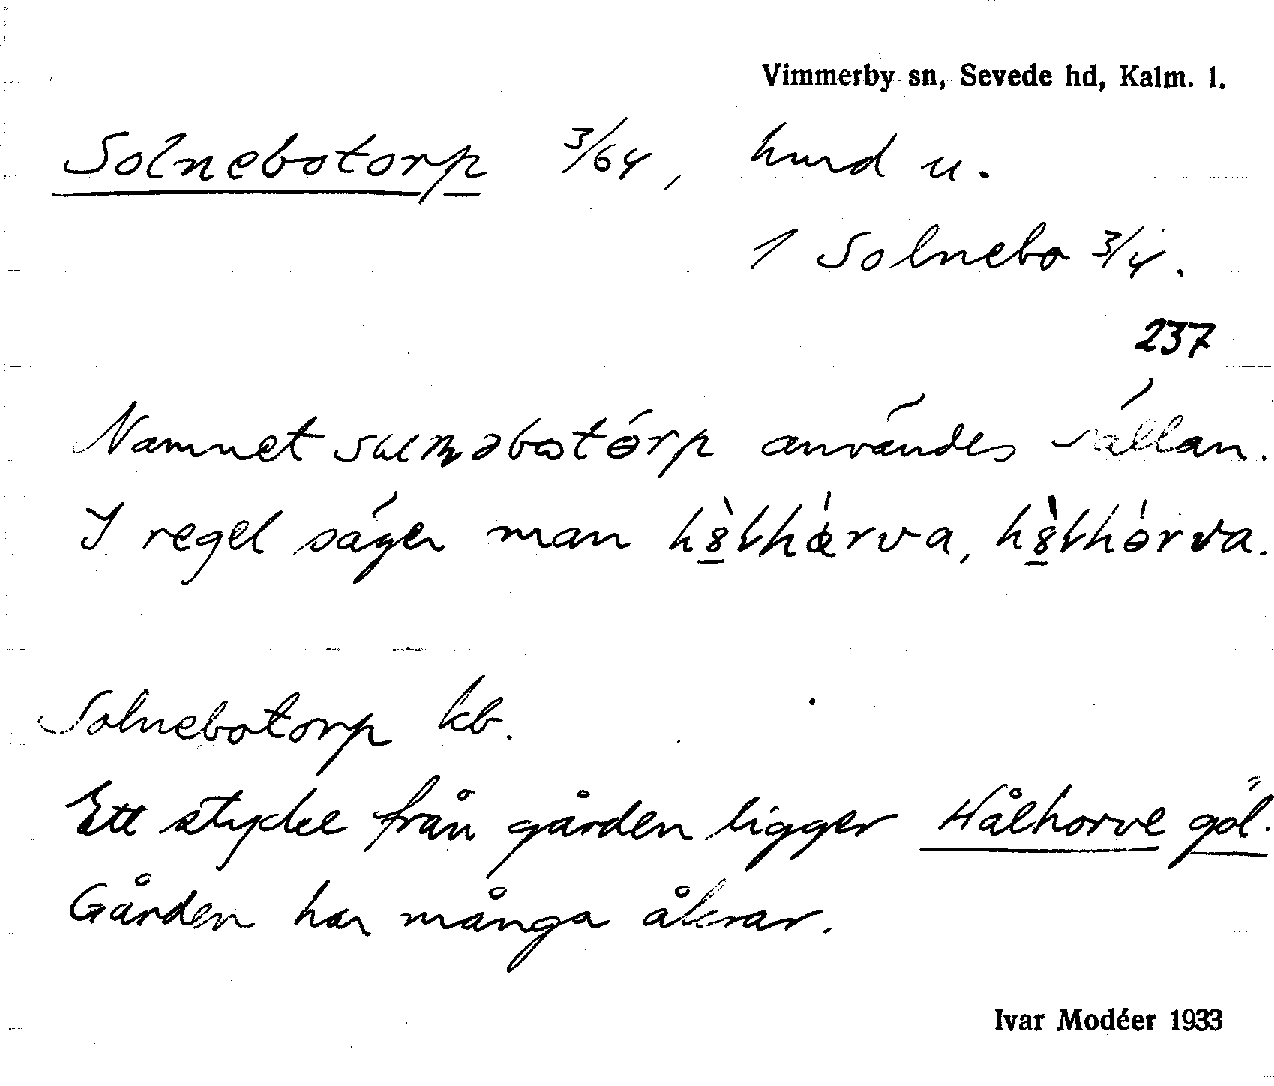 Vimmerby sn, Sevede hd, Kalm. l.
Solnebotorp 3/64, hmd u.
1 Solnebo 3/4.
237
Namnet användes sällan.
I regel säger man
Solnebotorp kb.
Ett stycke från gården ligger Hålhorve göl.
Gården har många åkrar.
Ivar Modéer 1933